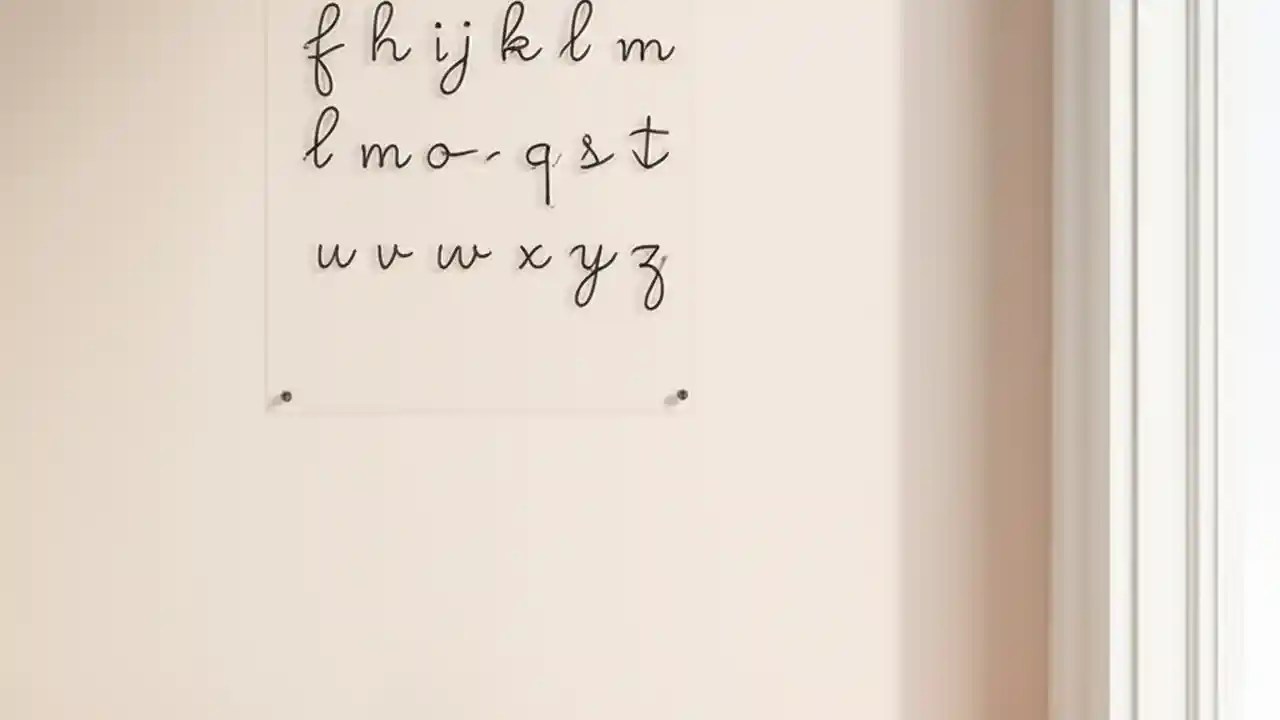 f h ij k l m
l m o - q s t
u v w x y z